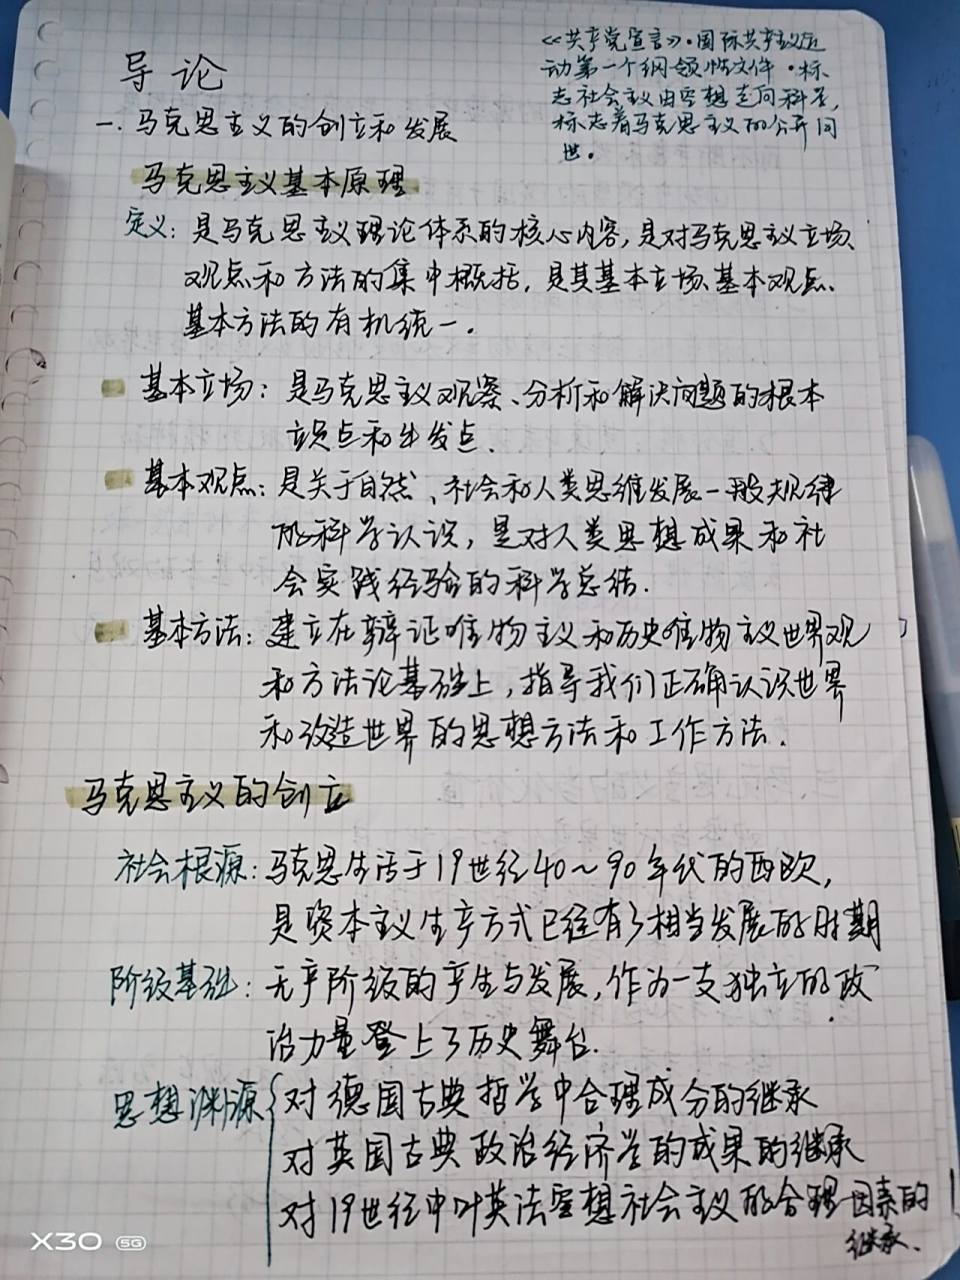 导论
《共产党宣言》·国际共产主义运
动第一个纲领性文件·标
志社会主义由空想走向科学,
标志着马克思主义的公开问
世。
一.马克思主义的创立和发展
马克思主义基本原理
定义:是马克思主义理论体系的核心内容,是对马克思主义立场、
观点和方法的集中概括,是其基本立场、基本观点、
基本方法的有机统一.
基本立场:是马克思主义观察、分析和解决问题的根本
立足点和出发点.
基本观点:是关于自然、社会和人类思维发展一般规律
的科学认识,是对人类思想成果和社
会实践经验的科学总结.
基本方法:建立在辩证唯物主义和历史唯物主义世界观
和方法论基础上,指导我们正确认识世界
和改造世界的思想方法和工作方法.
马克思主义的创立
社会根源:马克思生活于19世纪40~90年代的西欧,
是资本主义生产方式已经有了相当发展的时期
阶级基础:无产阶级的产生与发展,作为一支独立的政
治力量登上了历史舞台.
思想渊源{对德国古典哲学中合理成分的继承
对英国古典政治经济学的成果的继承
对19世纪中叶英法空想社会主义的合理因素的
继承.
X30 5G